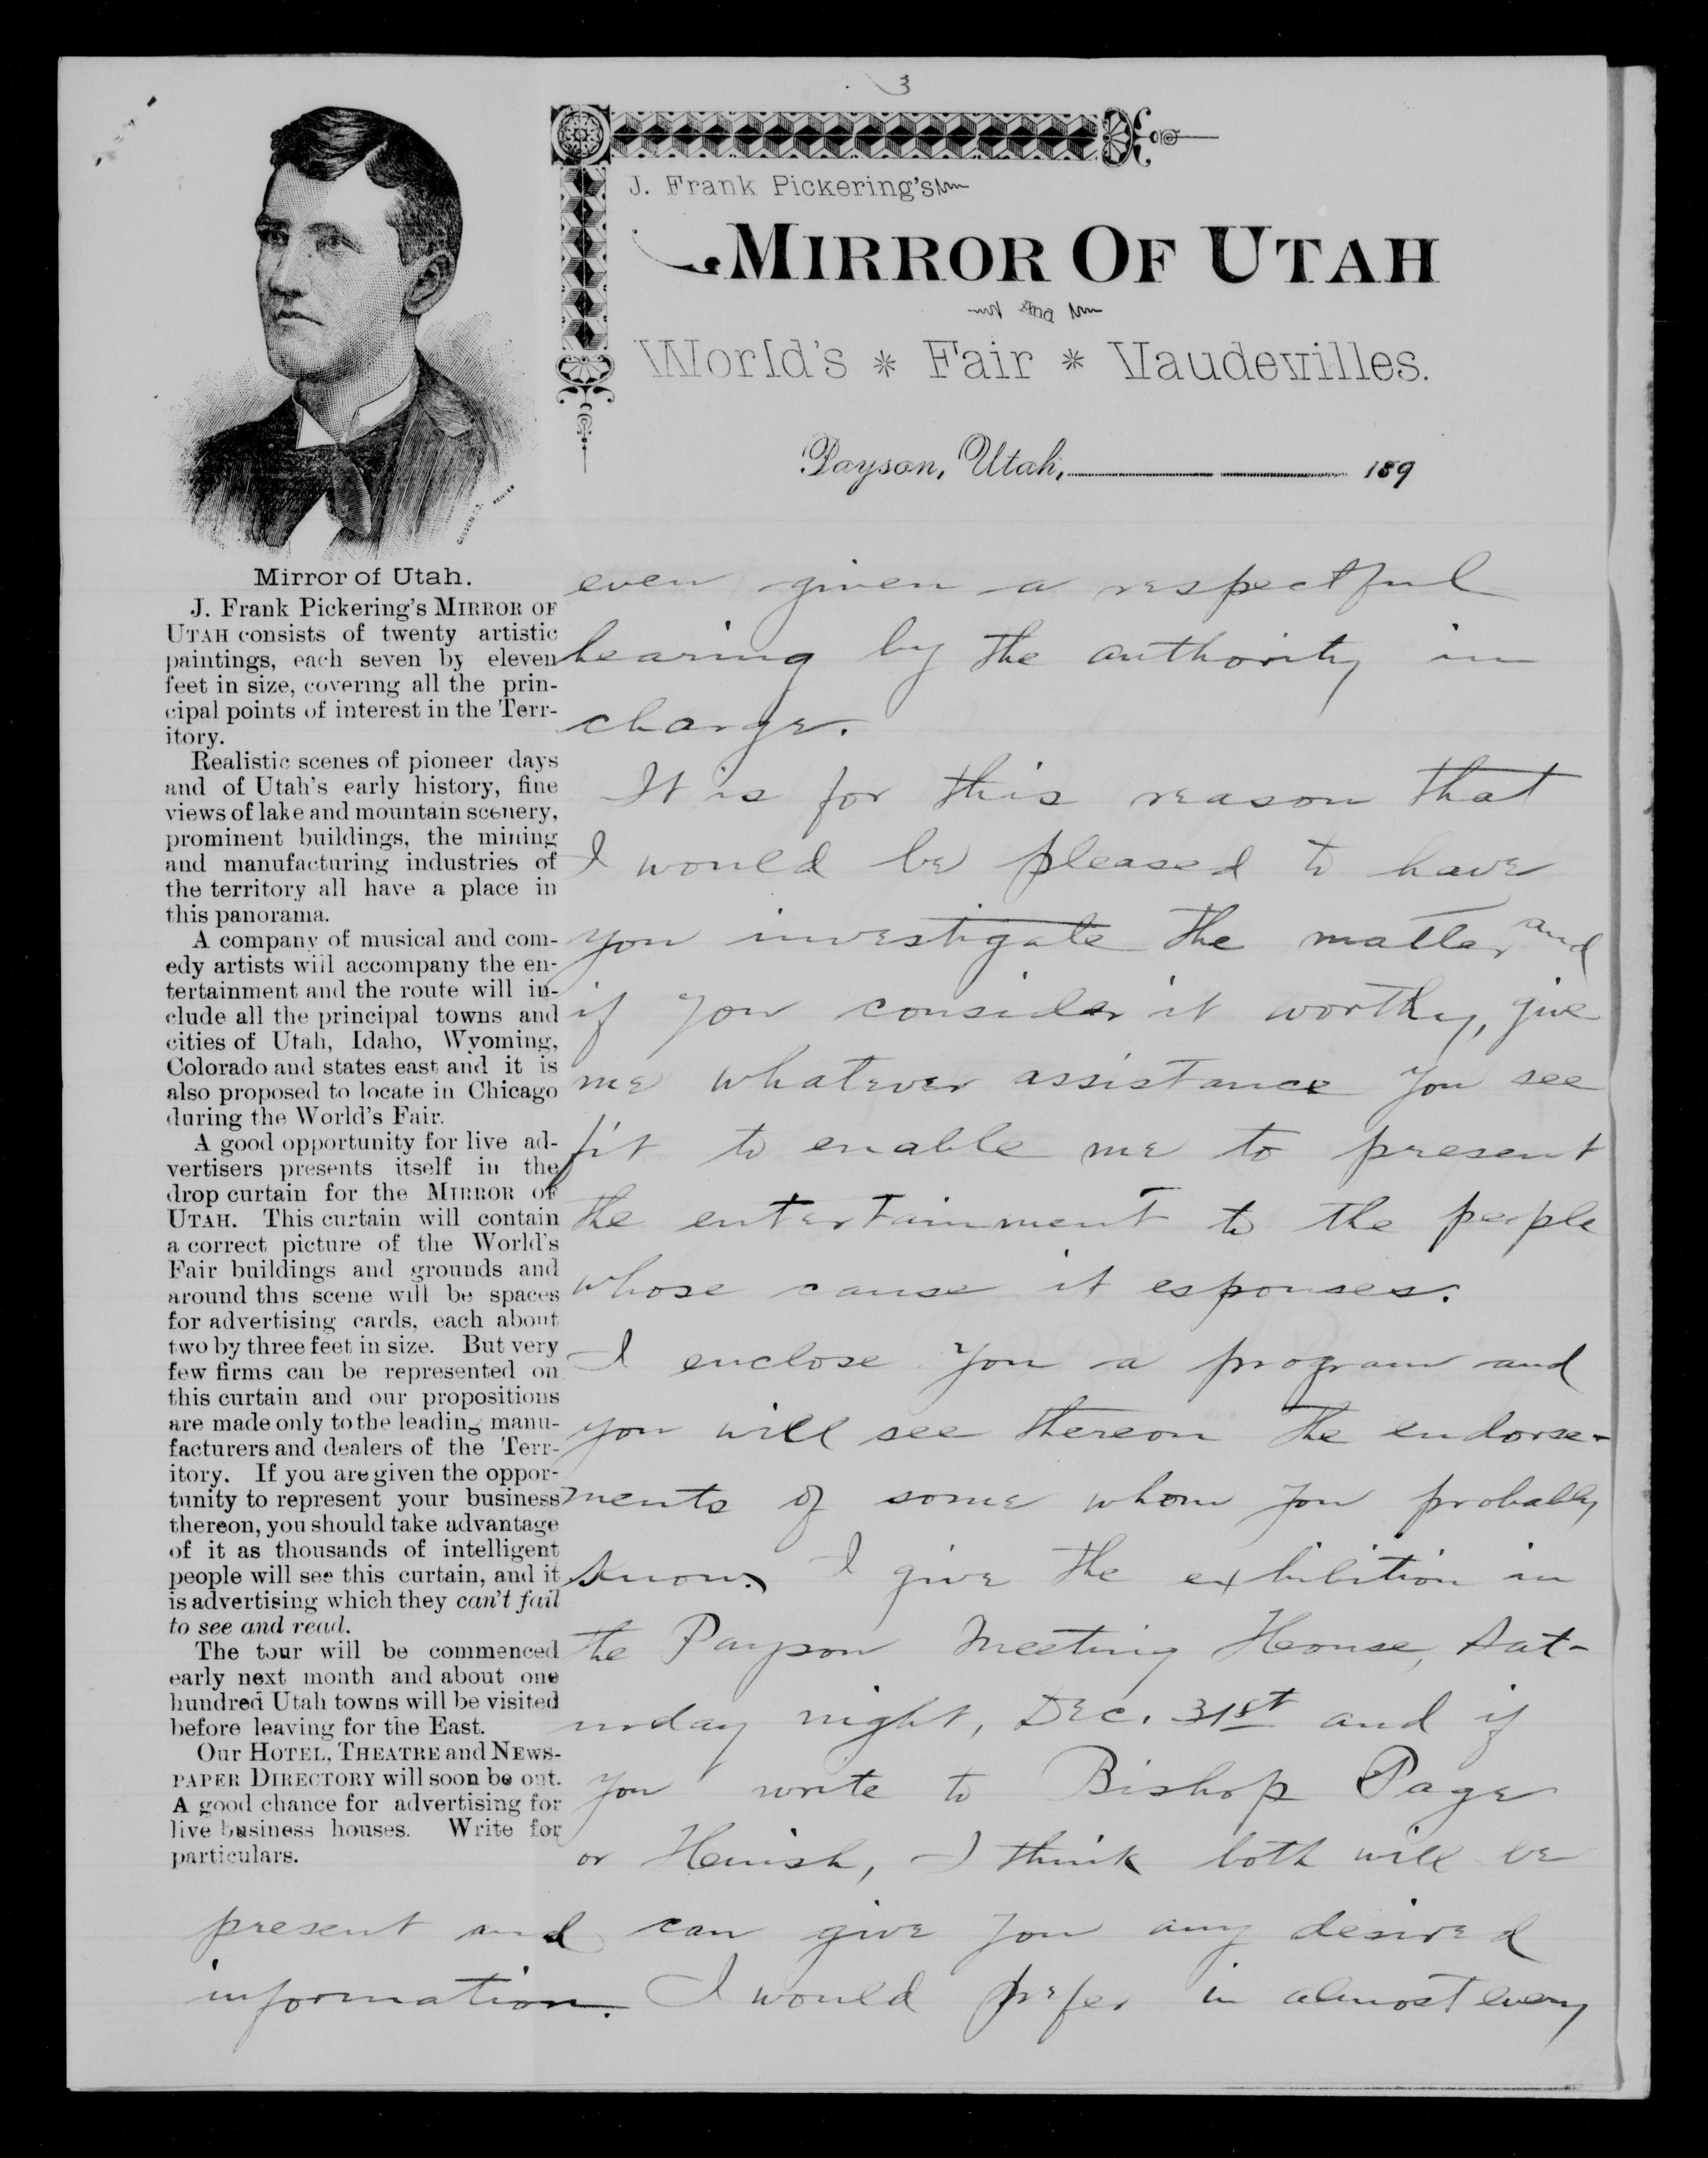 3
J. Frank Pickering's
MIRROR OF UTAH
and
World's * Fair * Vaudevilles.
Payson, Utah, 189
Mirror of Utah.
J. Frank Pickering's MIRROR OF
UTAH consists of twenty artistic
paintings, each seven by eleven
feet in size, covering all the prin-
cipal points of interest in the Terr-
itory.
Realistic scenes of pioneer days
and of Utah's early history, fine
views of lake and mountain scenery,
prominent buildings, the mining
and manufacturing industries of
the territory all have a place in
this panorama.
A company of musical and com-
edy artists will accompany the en-
tertainment and the route will in-
clude all the principal towns and
cities of Utah, Idaho, Wyoming,
Colorado and states east and it is
also proposed to locate in Chicago
during the World's Fair.
A good opportunity for live ad-
vertisers presents itself in the
drop curtain for the MIRROR OF
UTAH. This curtain will contain
a correct picture of the World's
Fair buildings and grounds and
around this scene will be spaces
for advertising cards, each about
two by three feet in size. But very
few firms can be represented on
this curtain and our propositions
are made only to the leading manu-
facturers and dealers of the Terr-
itory. If you are given the oppor-
tunity to represent your business
thereon, you should take advantage
of it as thousands of intelligent
people will see this curtain, and it
is advertising which they can't fail
to see and read.
The tour will be commenced
early next month and about one
hundred Utah towns will be visited
before leaving for the East.
Our HOTEL, THEATRE and NEWS-
PAPER DIRECTORY will soon be out.
A good chance for advertising for
live business houses. Write for
particulars.
even given a respectful
hearing by the authority in
charge.
It is for this reason that
I would be pleased to have
you investigate the matter and
if you consider it worthy, give
me whatever assistance you see
fit to enable me to present
the entertainment to the people
whose cause it espouses.
I enclose you a program and
you will see thereon the endorse-
ments of some whom you probably
know. I give the exhibition in
the Payson Meeting House, Sat-
urday night, Dec. 31st and if
you write to Bishop Page
or Henish, I think both will be
present and can give you any desired
information. I would prefer in almost every